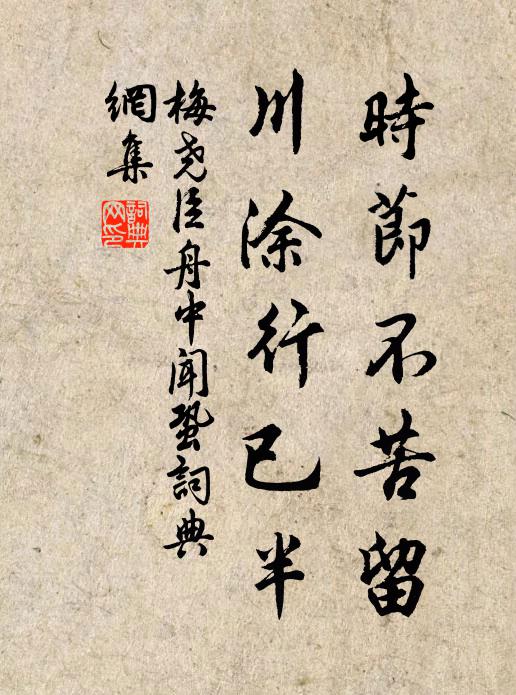 時節不苦留
川涂行已半
梅尧臣舟中闻蛩詞典
網集
詞典網印